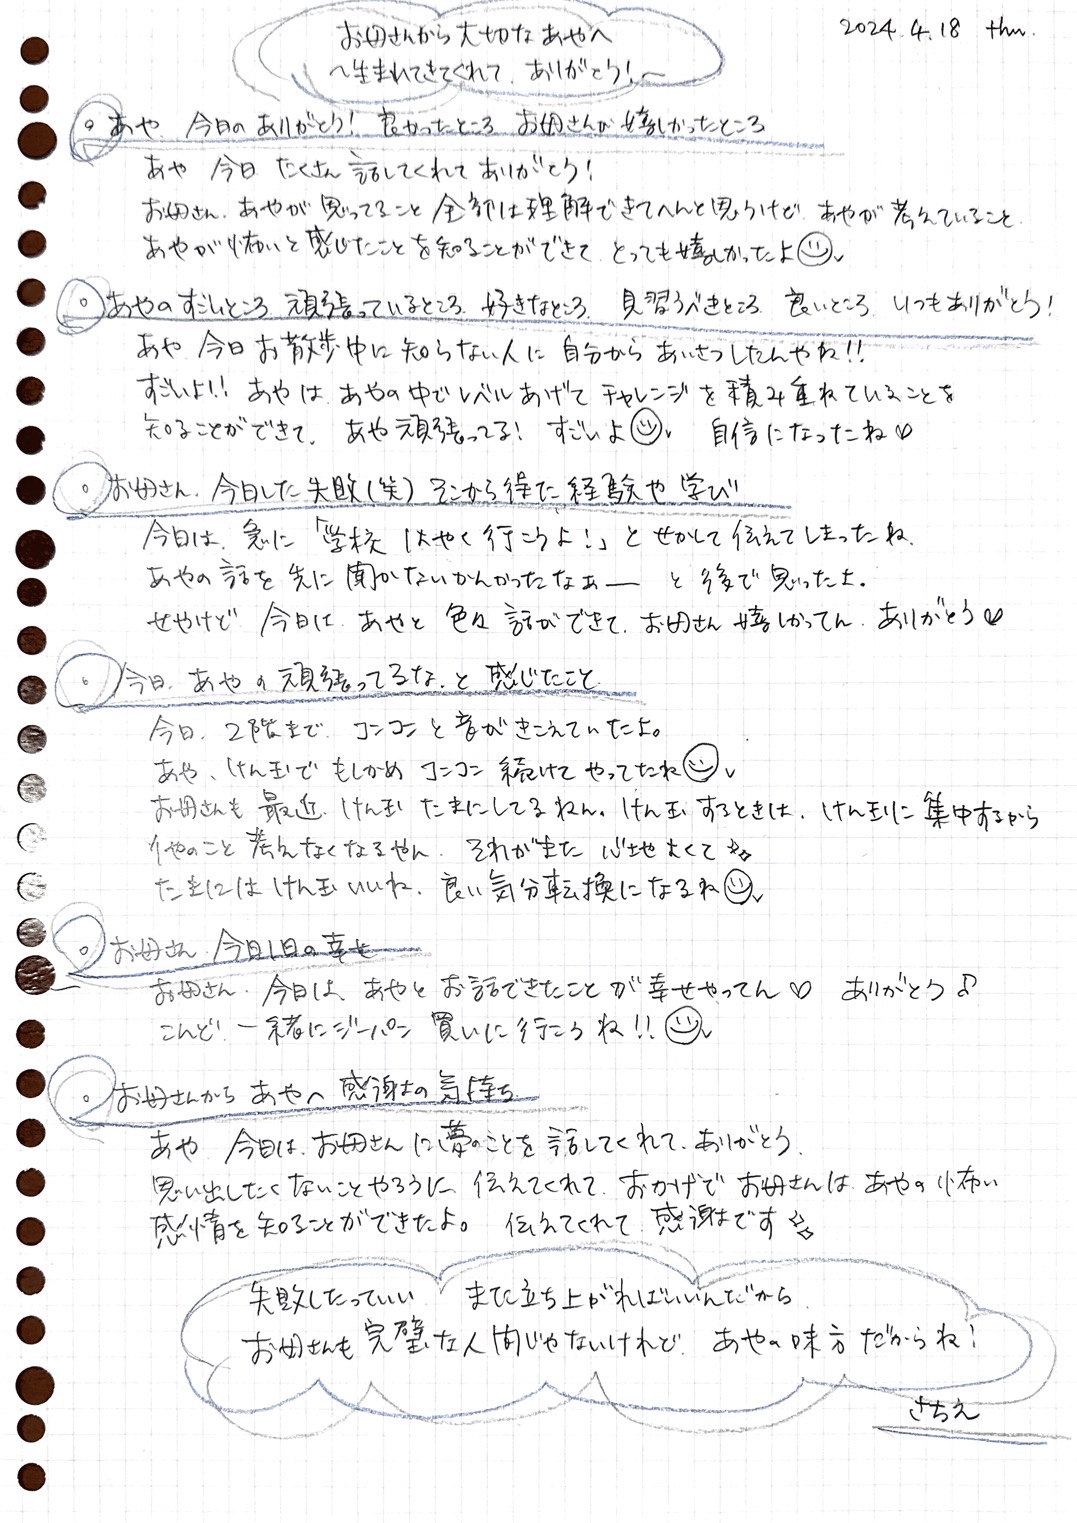 2024.4.18 thu.
お母さんから大切なあやへ
〜生まれてきてくれて、ありがとう!〜
あや 今日のありがとう! 良かったところ お母さんが嬉しかったところ
あや 今日 たくさん話してくれてありがとう!
お母さん、あやが思ってること全部は理解できてへんと思うけど、あやが考えていること、
あやが怖いと感じたことを知ることができて、とっても嬉しかったよ
あやのすごいところ、頑張っているところ、好きなところ、見習うべきところ、良いところ、いつもありがとう!
あや 今日お散歩中に知らない人に自分からあいさつしたんやね!!
すごいよ!! あやは、あやの中でレベルあげてチャレンジを積み重ねていることを
知ることができて、あや頑張ってる! すごいよ 自信になったね♡
お母さん、今日した失敗(笑)そこから得た経験や学び
今日は、急に「学校はやく行こうよ!」とせかして伝えてしまったね、
あやの話を先に聞かないかんかったなぁーと後で思ったよ。
せやけど 今日は、あやと色々話ができて、お母さん嬉しかってん、ありがとう♡
今日、あやの頑張ってるな、と感じたこと
今日、2階まで、コンコンと音がきこえていたよ。
あや、けん玉で もしかめ コンコン続けてやってたね
お母さんも最近、けん玉たまにしてるねん。けん玉するときは、けん玉に集中するから
他のこと考えなくなるやん、それがまた心地よくて
たまにはけん玉いいね、良い気分転換になるね
お母さん、今日1日の幸せ
お母さん、今日は、あやとお話できたことが幸せやってん♡ ありがとう♪
こんど! 一緒にジーパン買いに行こうね!!
お母さんからあやへ感謝の気持ち
あや 今日は、お母さんに夢のことを話してくれて、ありがとう、
思い出したくないことやろうに、伝えてくれて、おかげでお母さんは、あやの怖い
感情を知ることができたよ。 伝えてくれて、感謝です
失敗したっていい また立ち上がればいいんだから、
お母さんも完璧な人間じゃないけれど、あやの味方だからね!
さちえ